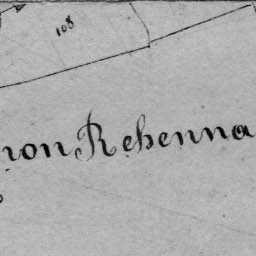 108
non Rehenna